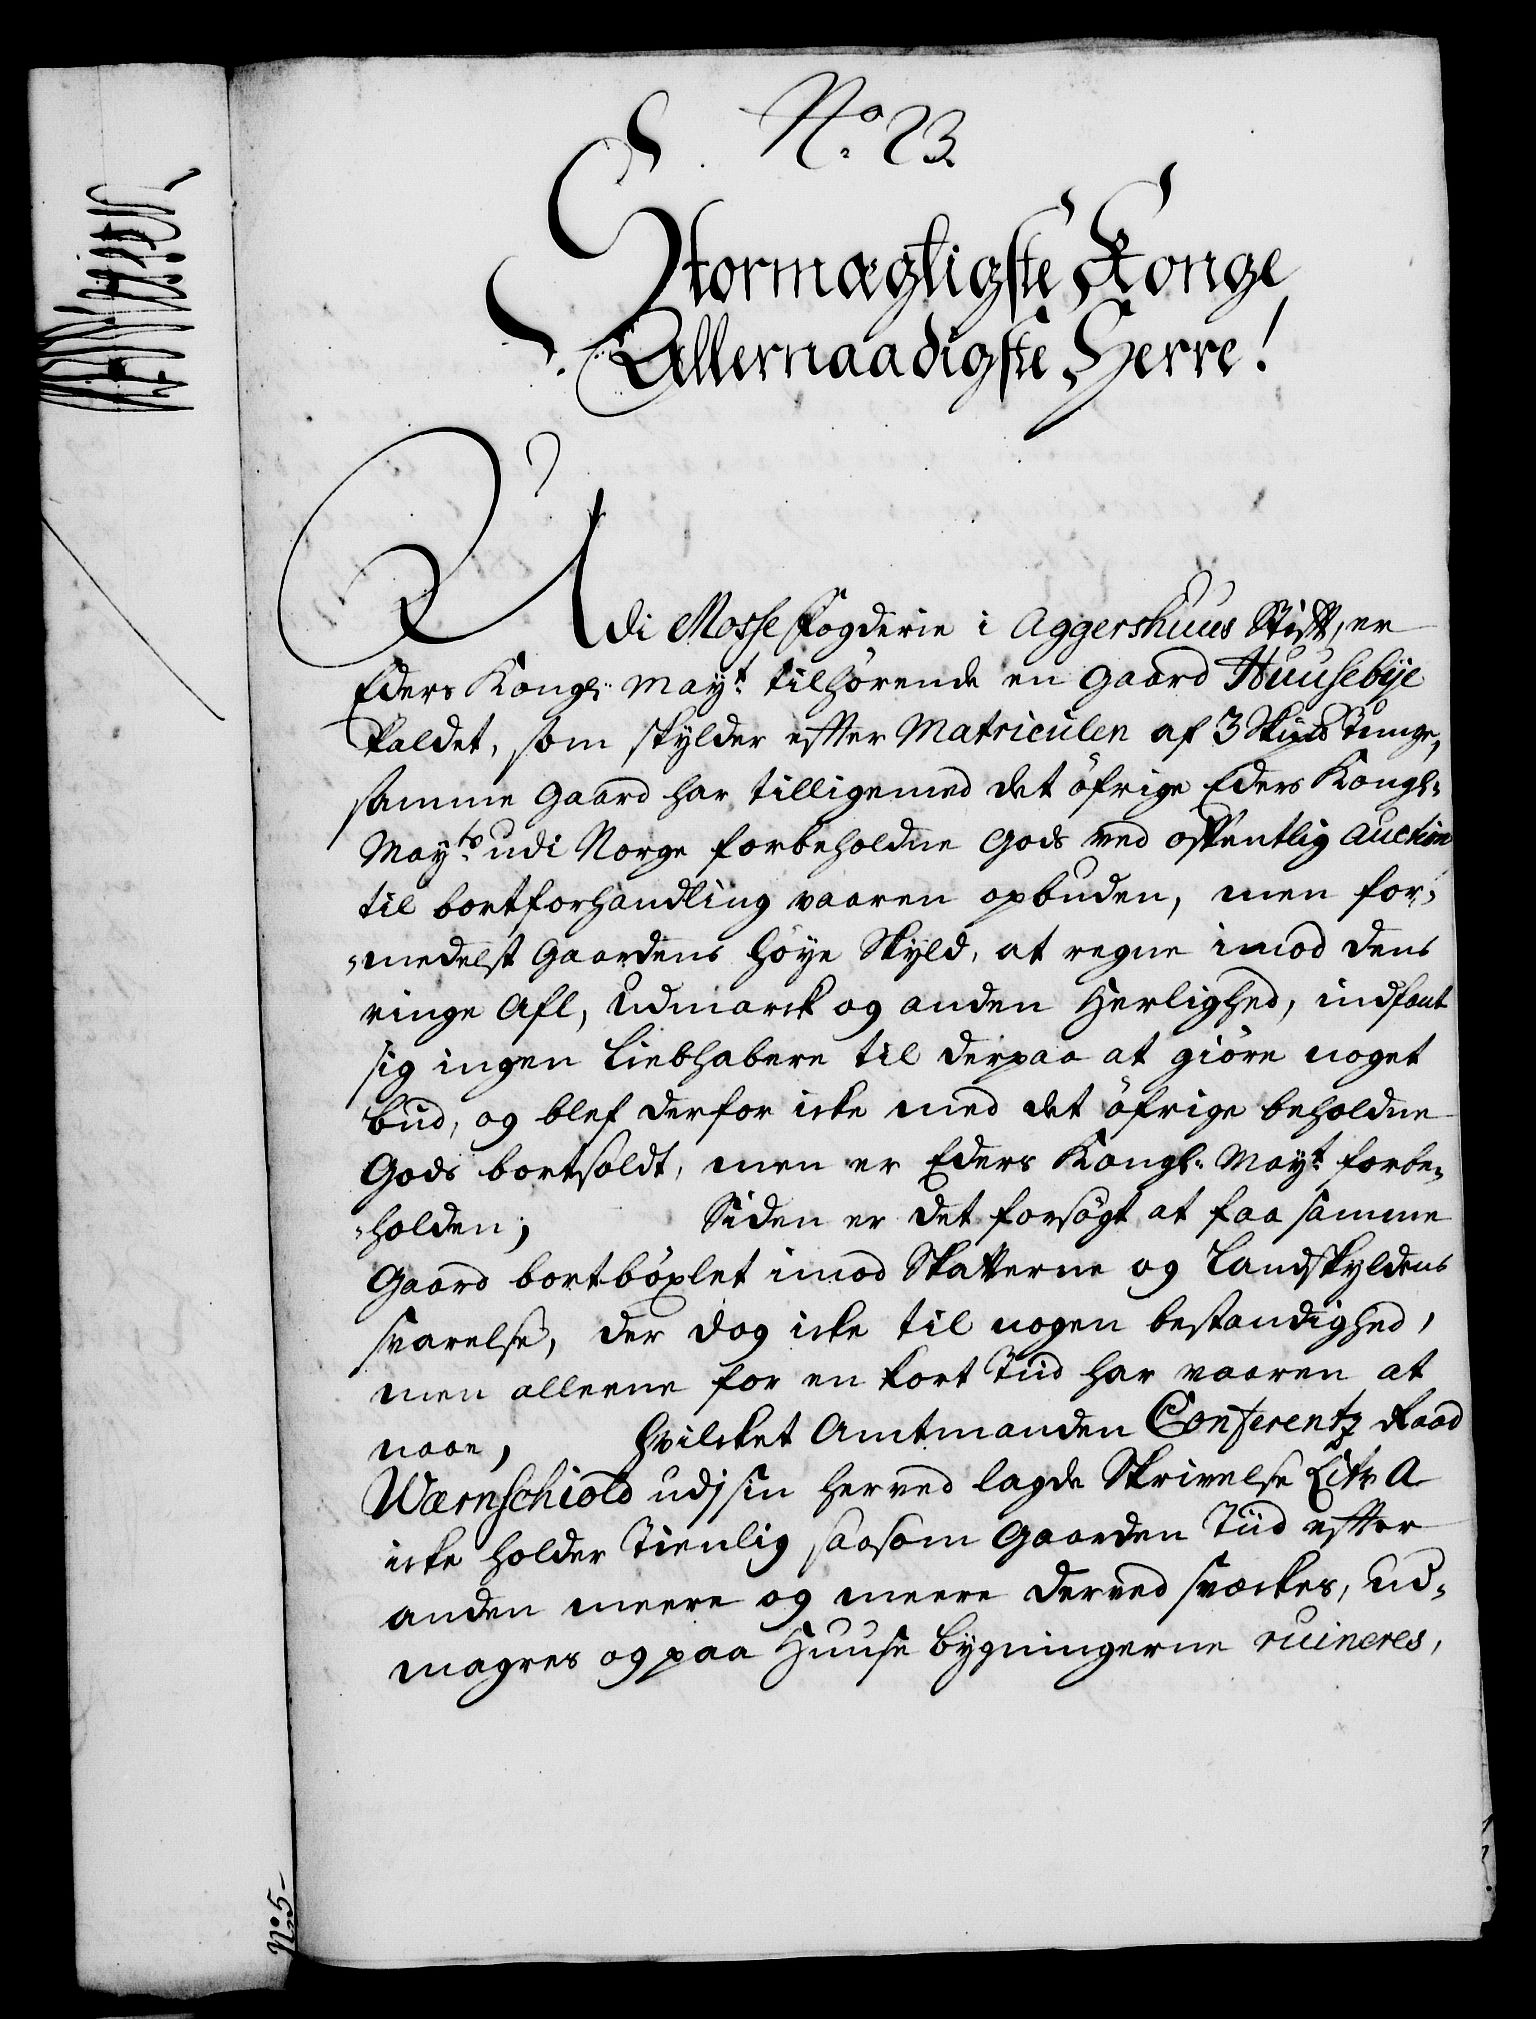 No. 23.
Stormægtigste Konge
Allernaadigste Herre!
Udi Mosse fogderie i Aggershuus Stift, er
Eders Kongl: Mayt: tilhørende en Gaard Huusebÿe
kaldet, som skylder effter Matriculen af 3 Skips Tunge,
samme Gaard har tilligemed det öfrige Eders Kongl:
Mayts: udi Norge forbeholdne Gods ved offentlig Auction
til bortforhandling vaaren opbuden, men for-
-medelst Gaardens höye Skyld, at regne imod dens
ringe Afl, Udmarck og anden Herlighed, indfant
sig ingen Liebhabere til derpaa at giöre noget
bud, og blef derfor icke med det öfrige beholdne
Gods bortsoldt, men er Eders Kongl: Mayt: forbe-
-holden; Siden er det forsögt at faa samme
Gaard bortböxlet imod Skatterne og Landskyldens
svarelse, der dog icke til nogen bestandighed,
men alleene for en kort Tiid har vaaren at
naae, hvilcket Amtmanden Conferentz Raad
Wærnschiold udj sin herved lagde Skrivelse Litr A
icke holder Tienlig saasom Gaarden Tiid effter
anden meere og meere derved svæckes, ud-
magres og paa Huuse bygningerne ruineres,
No: 5-